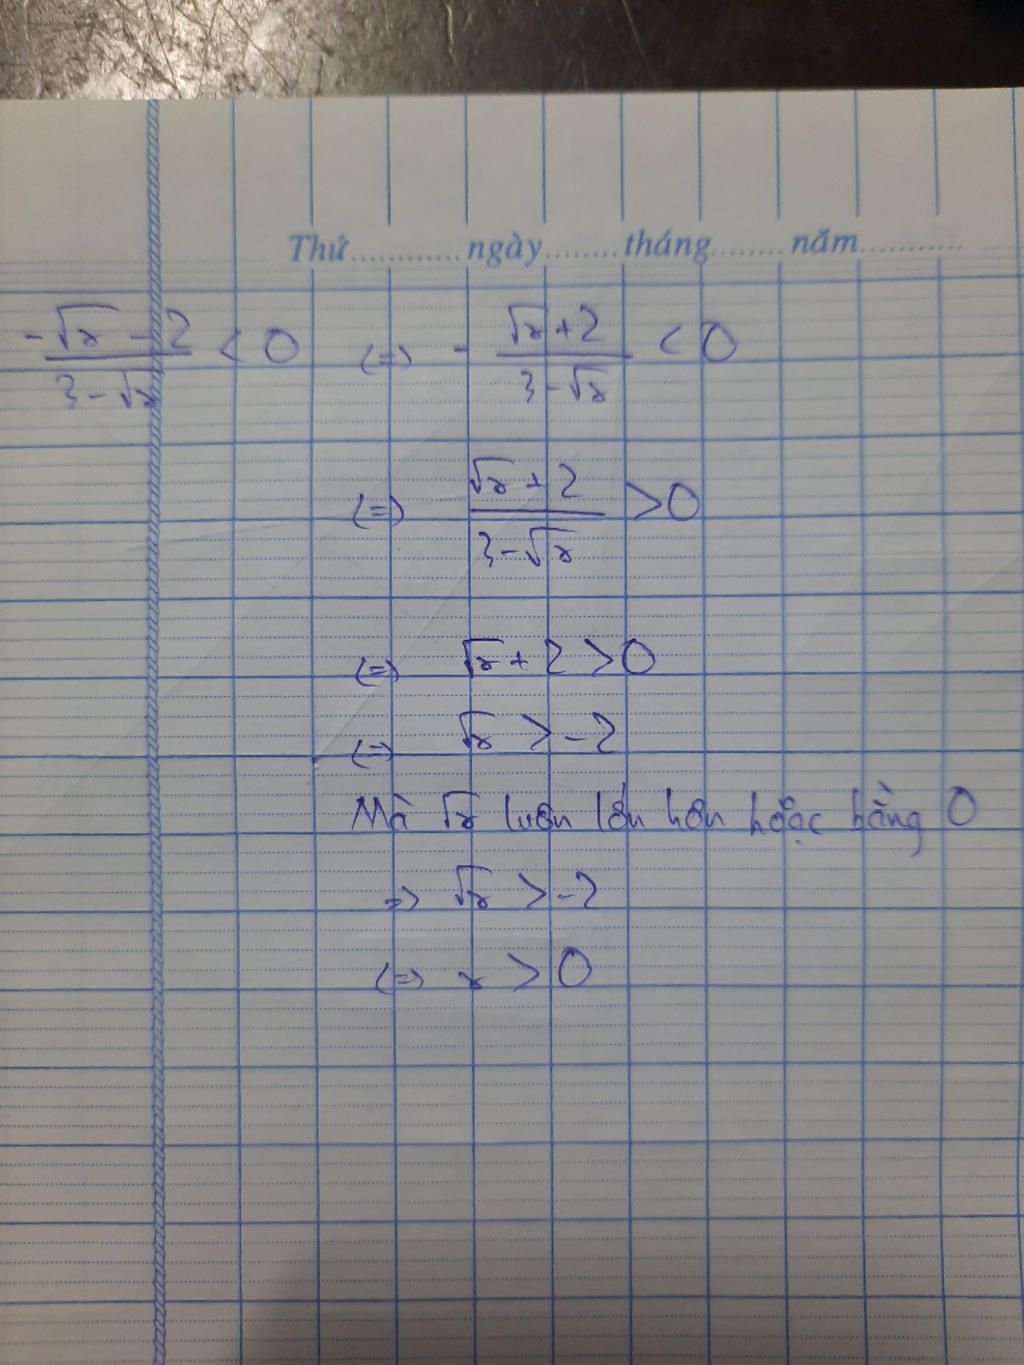 Thứ............ngày........tháng........năm...........
(-√x - 2)/(3 - √x) < 0 (=) - (√x + 2)/(3 - √x) < 0
(=) (√x + 2)/(3 - √x) > 0
(=) √x + 2 > 0
(=) √x > -2
Mà √x luôn lớn hơn hoặc bằng 0
=> √x > -2
(=) x > 0